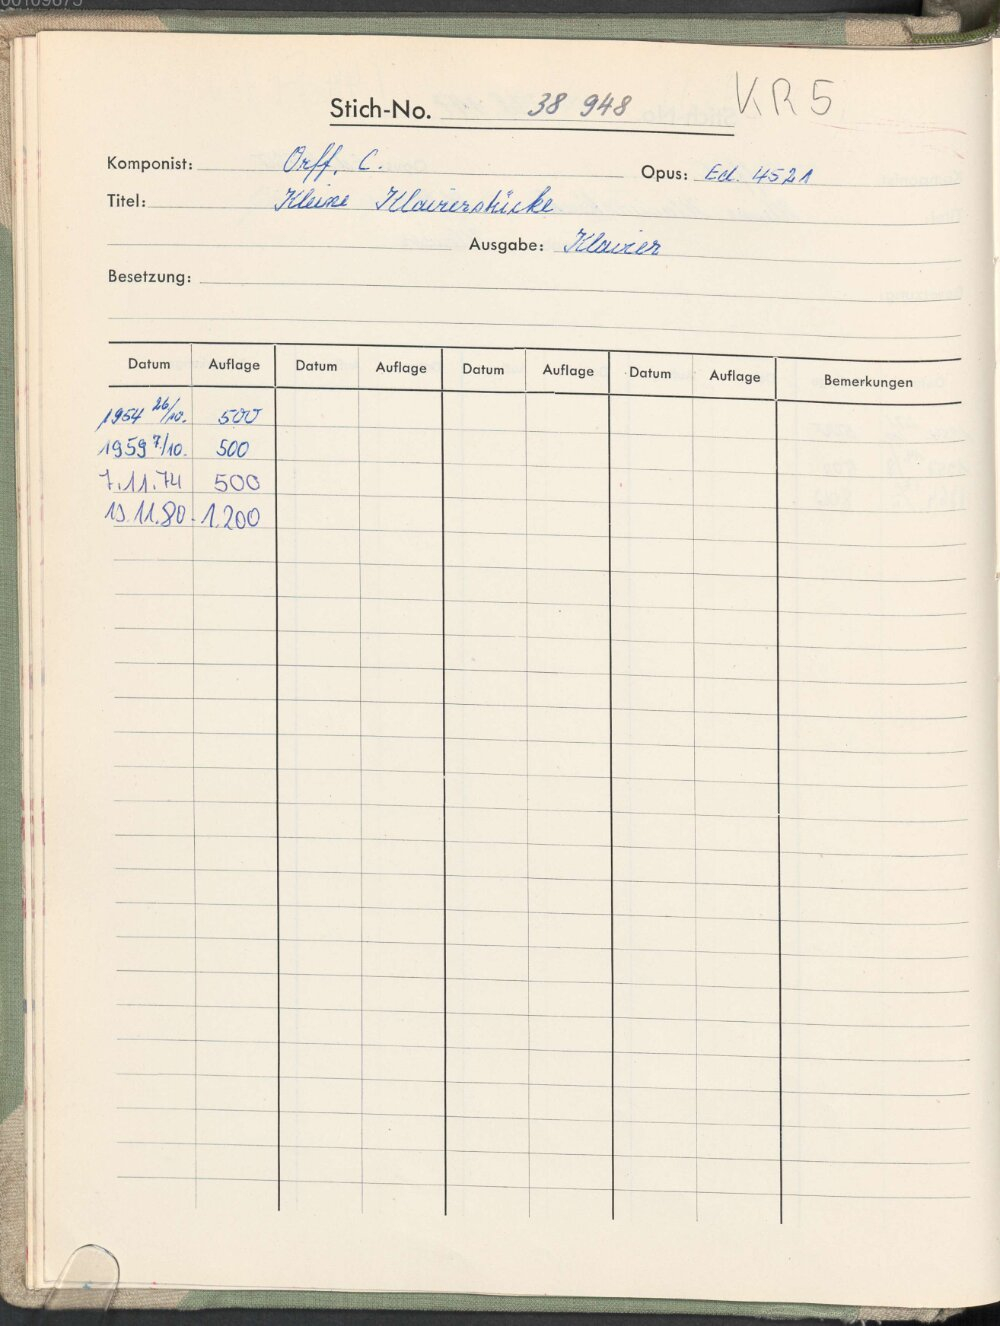 Stich-No. 38 948 KR5
Komponist: Orff, C. Opus: Ed. 4521
Titel: Kleine Klavierstücke
Ausgabe: Klavier
Besetzung:
Datum Auflage Datum Auflage Datum Auflage Datum Auflage Bemerkungen
1954 26/10. 500
1959 7/10. 500
7.11.74 500
11.80. 1.200